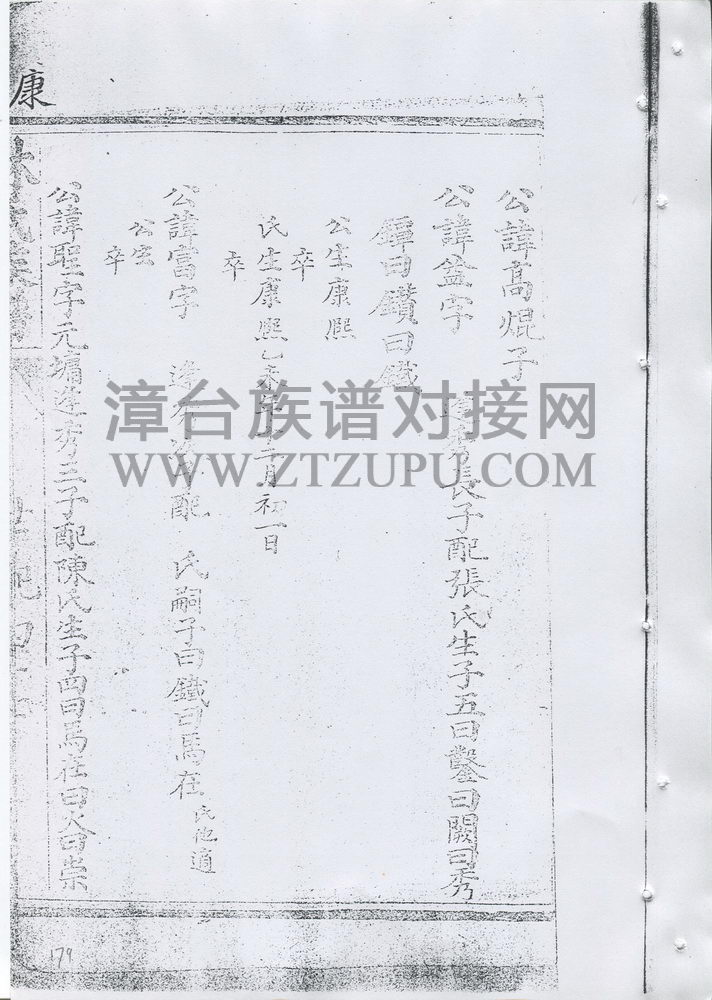 公諱高焜子
公諱益字 長子配張氏生子五曰鑿曰闕曰秀
鐔曰鑽曰鐵
公生康熙
卒
氏生康熙乙未年十二月初一日
卒
公諱富字 逢 配 氏嗣子曰鐵曰馬在 氏他適
公生
卒
公諱聖字元墉逢秀三子配陳氏生子四曰馬在曰火曰崇
康
氏族譜
漳台族谱对接网
WWW.ZTZUPU.COM
179